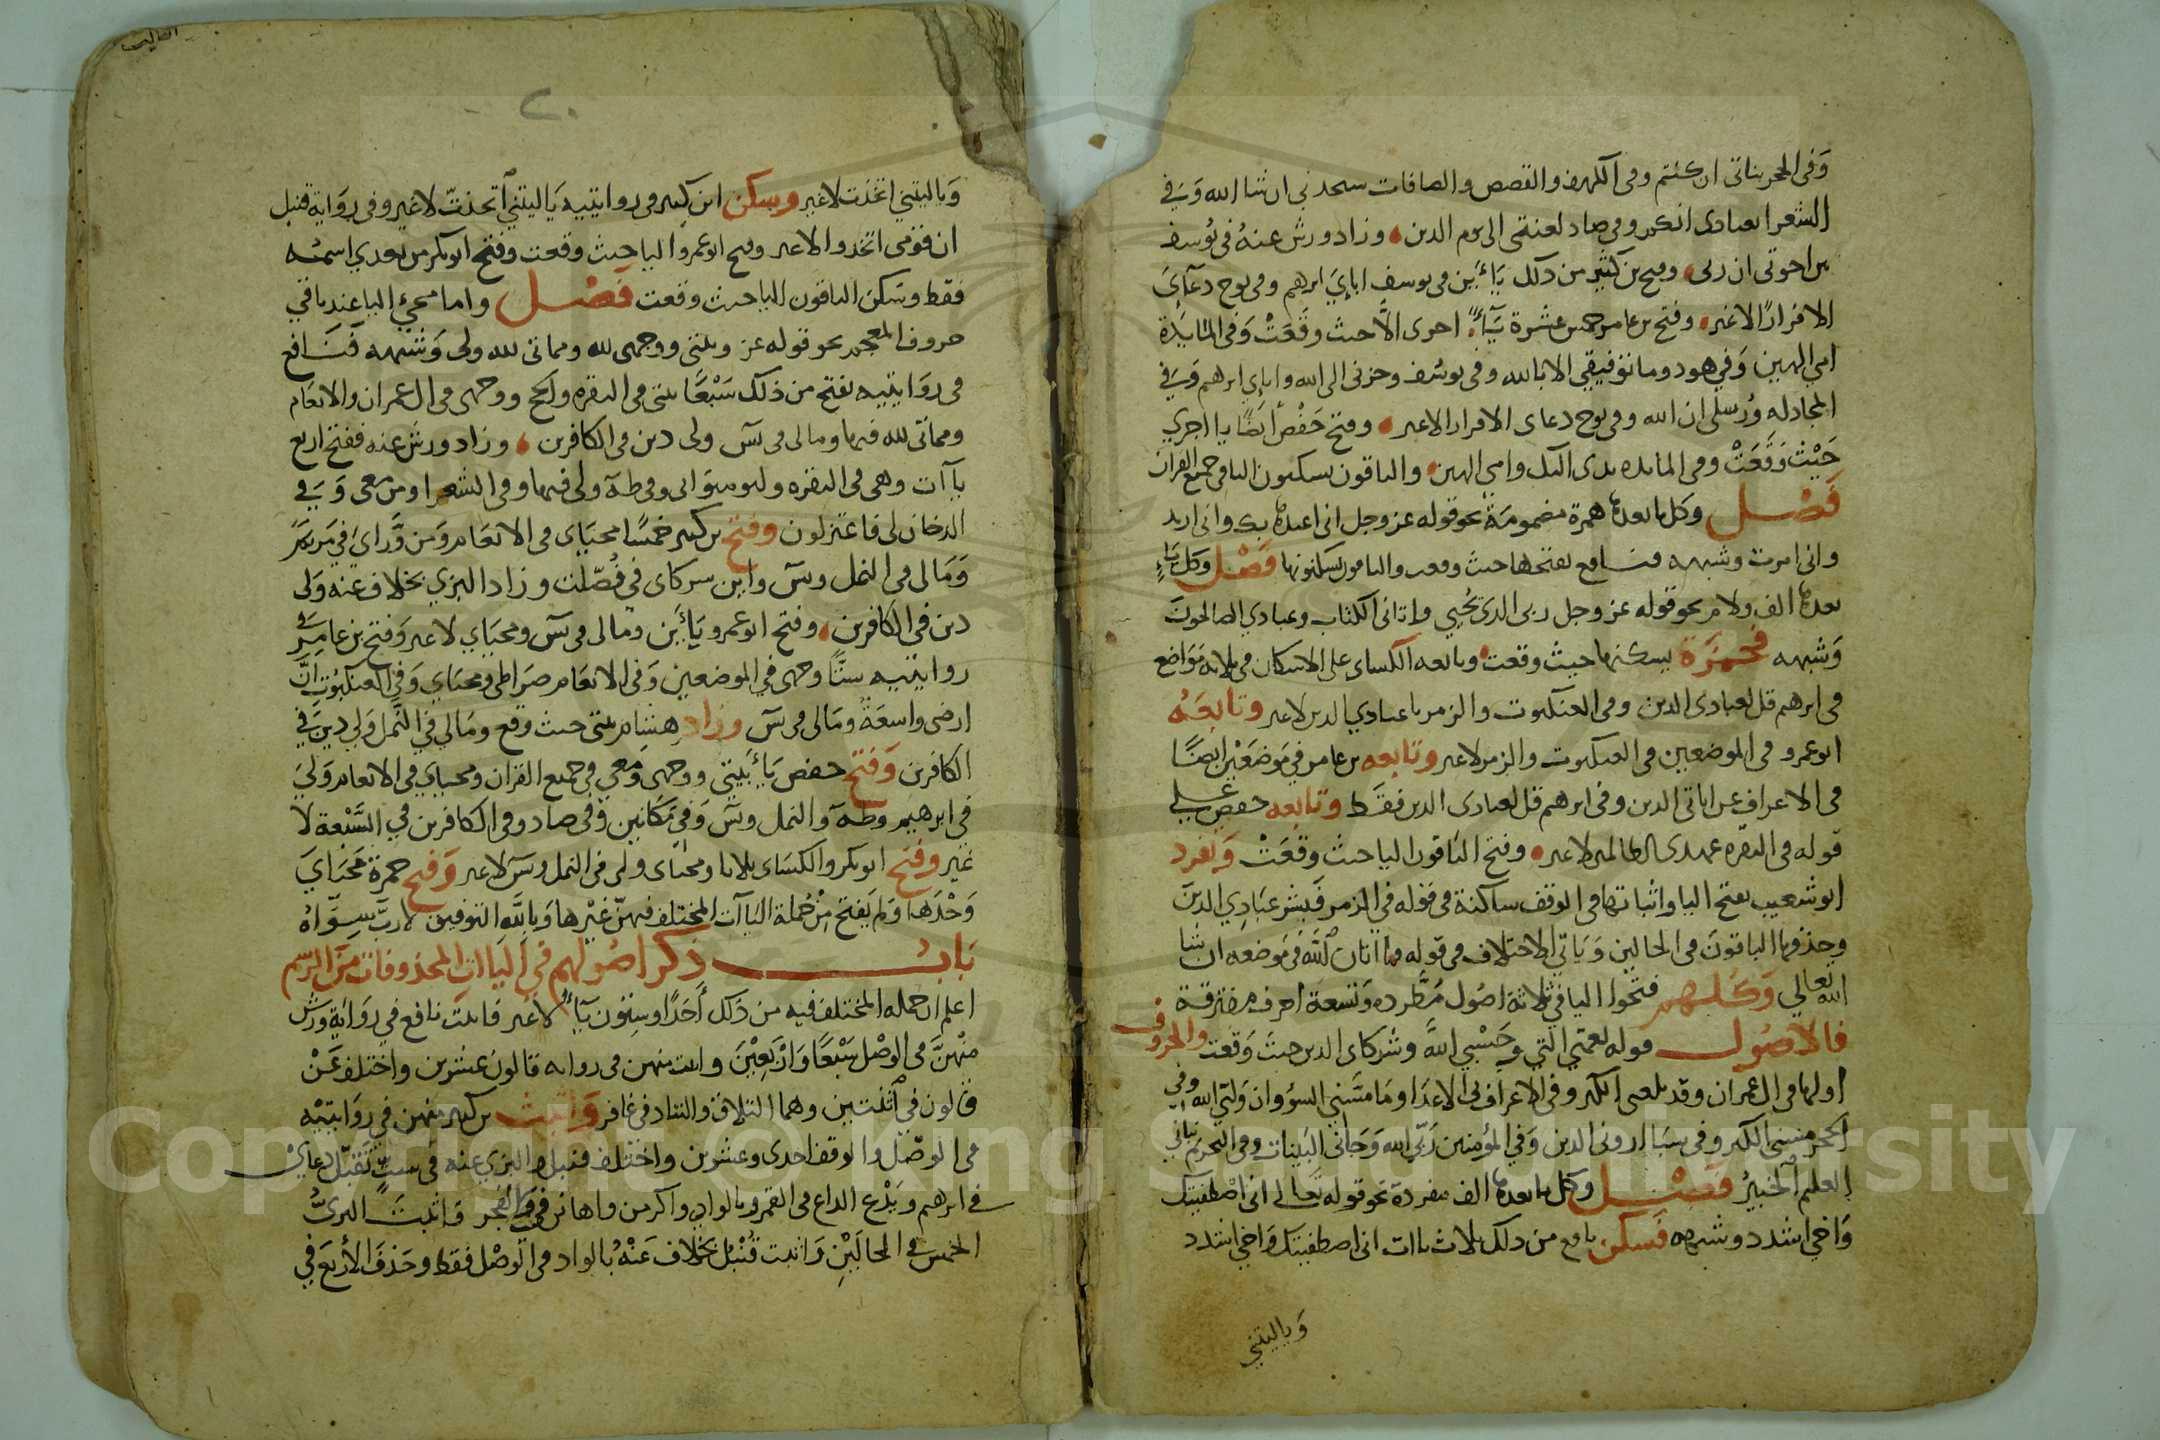 وفى الحجر بناتى ان كنتم وفى الكهف والقصص والصافات ستجدنى ان شا الله وفي
الشعرا بعبادى انكم وفى صاد لعنتى الى يوم الدين وزاد ورش عنه فى يوسف
بين اخوتى ان ربى وفتح بن كثير من ذلك ياءين فى يوسف اباءي ابرهيم وفى نوح دعآءى
الا فرارا لاغير وفتح بن عامر خمس عشرة ياءً اجرى الا حيث وقعت وفى المايدة
امي الهين وفي هود وما توفيقي الا بالله وفى يوسف وحزنى الى الله واباءي ابرهيم وفي
المجادله ورسلى ان الله وفى نوح دعاى الا فرارا لاغير وفتح حفص أيضًا يا اجري
حيث وقعت وفى المايده يدى اليك وامى الهين والباقون يسكنون اليا فى جميع القران
فصل وكل يا بعدها همزة مضمومة نحو قوله عز وجل انى اعيذها بك وانى اريد
وانى امرت وشبهه فنافع يفتحها حيث وقعت والباقون يسكنونها فصل وكل ياء
بعدها الف ولام نحو قوله عز وجل ربى الذى يُحيي واتانى الكتاب وعبادي الصالحون
وشبهه فحمزة يسكنها حيث وقعت وتابعه الكساى على الاسكان فى ثلاثة مواضع
فى ابرهيم قل لعبادى الذين وفى العنكبوت والزمر يا عبادي الذين لاغير وتابعه
ابوعمرو فى الموضعين فى العنكبوت والزمر لاغير وتابعه بن عامر في موضعين ايضًا
فى الاعراف عن اياتى الذين وفى ابرهيم قل لعبادى الذين فقط وتابعه حفص على
قوله فى البقره عهدى الظالمين لاغير وفتح الباقون اليا حيث وقعت وتفرد
ابو شعيب بفتح اليا واثباتها فى الوقف ساكنة فى قوله في الزمر فبشر عبادي الذين
وحذفها الباقون فى الحالين وياتي الاختلاف فى قوله فما اتان الله فى موضعه ان شا
الله تعالي وكلهم فتحوا اليا في ثلاثة اصول مطرده وتسعة احرف مفترقة
فالاصول قوله نعمتي التي وحسبي الله وشركاى الذين حيث وقعت والحروف
اولها فى ال عمران وقد بلغنى الكبر وفى الاعراف بى الاعدا وما مسني السؤ وان وليّ الله وفي
الحجر مسنى الكبر وفى سبا ارونى الذين وفي المؤمنين ربي الله وجانى البينات وفى التحريم نباني
العليم الخبير فصل وكل يا بعدها الف مفردة نحو قوله تعالى انى اصطفيتك
واخي اشدد وشبهه فسكن نافع من ذلك ثلاث ياات انى اصطفيتك واخي اشدد
وياليتني
وياليتني اتخذت لاغير وسكن ابن كثير فى روايتيه ياليتني اتخذت لاغير وفى رواية قنبل
ان قومى اتخذوا لاغير وفتح ابوعمرو اليا حيث وقعت وفتح ابوبكر من بعدي اسمه
فقط وسكن الباقون اليا حيث وقعت فصل واما مجئ اليا عند باقي
حروف المعجم نحو قوله عز وجل بيتى ووجهى لله ومماتى لله ولى وشبهه فنافع
فى روايتيه يفتح من ذلك سبعًا بيتى فى البقره والحج ووجهى فى ال عمران والانعام
ومماتى لله فيها ومالى فى يسٓ ولى دين فى الكافرين وزاد ورش عنه ففتح اربع
ياآت وهى فى البقره وليومنوا بى وفى طه ولى فيها وفى الشعرا ومن معى وفي
الدخان لى فاعتزلون وفتح بن كثير خمسًا محياى فى الانعام ومن ورآي في مريم
ومالى فى النمل ويسٓ واين شركاى في فصلت وزاد البزي بخلاف عنه ولى
دين فى الكافرين وفتح ابوعمرو ياءين ومالى فى يسٓ ومحياي لاغير وفتح بن عامر في
روايتيه ستًا وجهى في الموضعين وفى الانعام صراطى ومحياي وفى العنكبوت ان
ارضى واسعة ومالى فى يسٓ وزاد هشام بيتى حيث وقع ومالي في النمل ولي دين في
الكافرين وفتح حفص ياء بيتي ووجهى ومعي في جميع القران ومحياي فى الانعام ولي
في ابرهيم وطه والنمل ويسٓ وفي مكانين وفى صاد وفى الكافرين في السبعة لا
غير وفتح ابوبكر والكساى ثلاثا ومحياى ولى فى النمل ويسٓ لاغير وفتح حمزة محياي
وحدها ولم يفتح من جملة الياآت المختلف فيهن غيرها وبالله التوفيق لا رب سواه
باب ذكر اصولهم في الياات المحذوفات من الرسم
اعلم ان جمله المختلف فيه من ذلك أحدًا وستون ياءً لاغير فاثبت نافع في رواية ورش
منهن فى الوصل سبعًا واربعين واثبت منهن فى روايه قالون عشرين واختلف عن
قالون في اثنتين وهما التلاق والتناد فى غافر واثبت بن كثير منهن في روايتيه
فى الوصل والوقف احدى وعشرين واختلف قنبل والبزي عنه فى ست تقبل دعاي
في ابرهيم ويدع الداع فى القمر وبالوادي واكرمن واهانن فى والفجر فاثبت البزيُّ
الخمس في الحالين واثبت قنبل بخلاف عنه بالواد فى الوصل فقط وحذف الأربع في